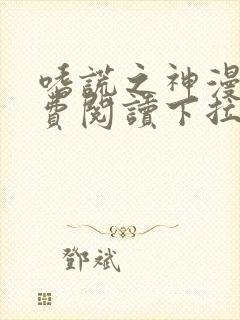 嗜謊之神漫
費閱讀下拉
鄧斌